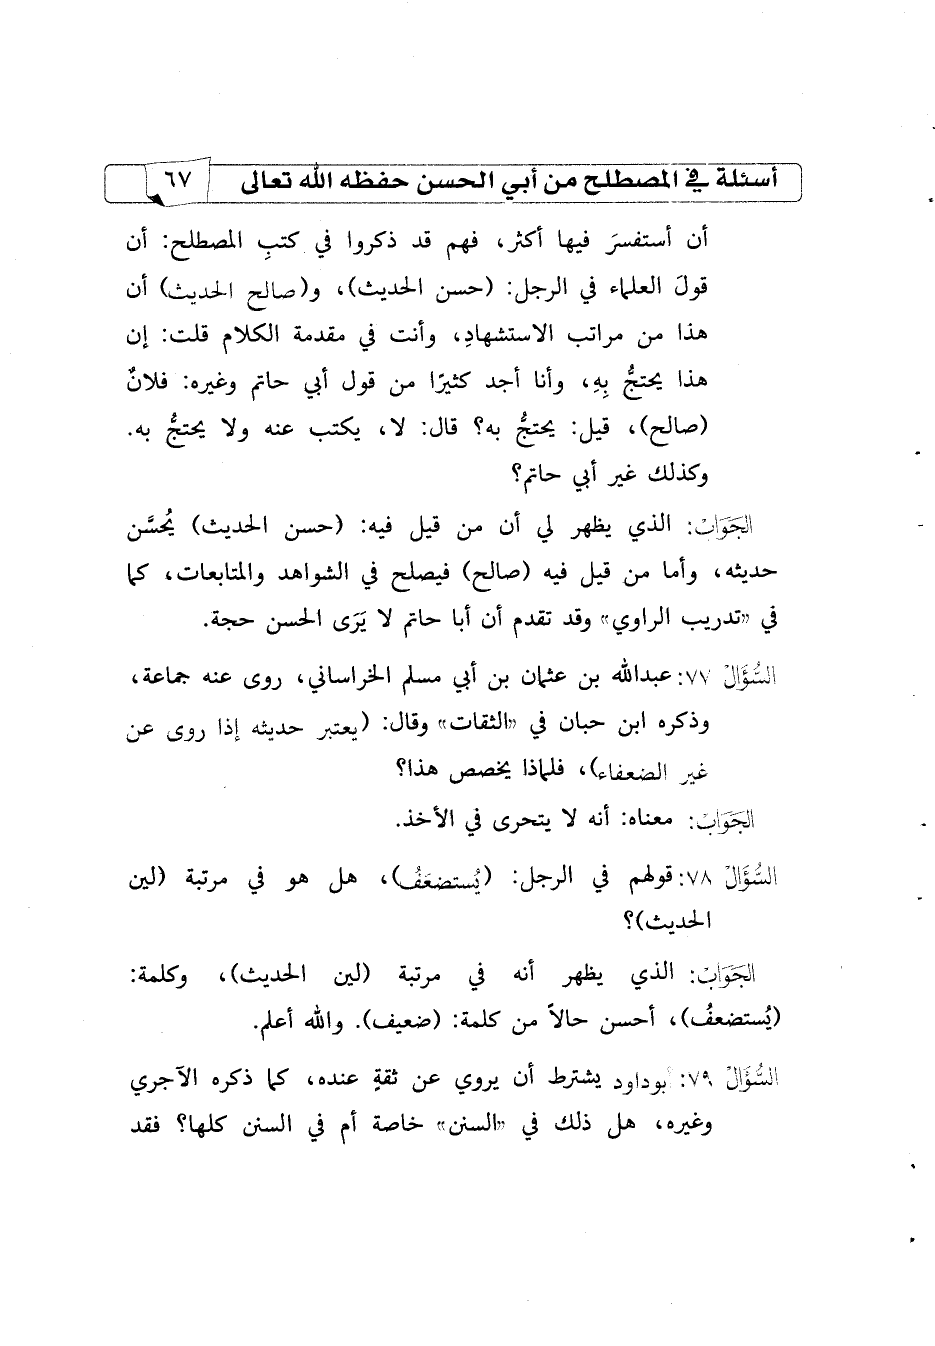 أسئلة في المصطلح من أبي الحسن حفظه الله تعالى ٦٧
أن أستفسرَ فيها أكثر، فهم قد ذكروا في كتبِ المصطلح: أن
قولَ العلماء في الرجل: (حسن الحديث)، و(صالح الحديث) أن
هذا من مراتب الاستشهادِ، وأنت في مقدمة الكلام قلت: إن
هذا يحتجُّ بِهِ، وأنا أجد كثيرًا من قول أبي حاتم وغيره: فلانٌ
(صالح)، قيل: يحتجُّ به؟ قال: لا، يكتب عنه ولا يحتجُّ به.
وكذلك غير أبي حاتم؟
الجَوَابُ: الذي يظهر لي أن من قيل فيه: (حسن الحديث) يُحسَّن
حديثه، وأما من قيل فيه (صالح) فيصلح في الشواهد والمتابعات، كما
في «تدريب الراوي» وقد تقدم أن أبا حاتم لا يَرَى الحسن حجة.
السُّؤَالُ ٧٧: عبدالله بن عثمان بن أبي مسلم الخراساني، روى عنه جماعة،
وذكره ابن حبان في «الثقات» وقال: (يعتبر حديثه إذا روى عن
غير الضعفاء)، فلماذا يخصص هذا؟
الجَوَابُ: معناه: أنه لا يتحرى في الأخذ.
السُّؤَالُ ٧٨: قولهم في الرجل: (يُستضعَفُ)، هل هو في مرتبة (لين
الحديث)؟
الجَوَابُ: الذي يظهر أنه في مرتبة (لين الحديث)، وكلمة:
(يُستضعفُ)، أحسن حالاً من كلمة: (ضعيف). والله أعلم.
السُّؤَالُ ٧٩: بوداود يشترط أن يروي عن ثقةٍ عنده، كما ذكره الآجري
وغيره، هل ذلك في «السنن» خاصة أم في السنن كلها؟ فقد